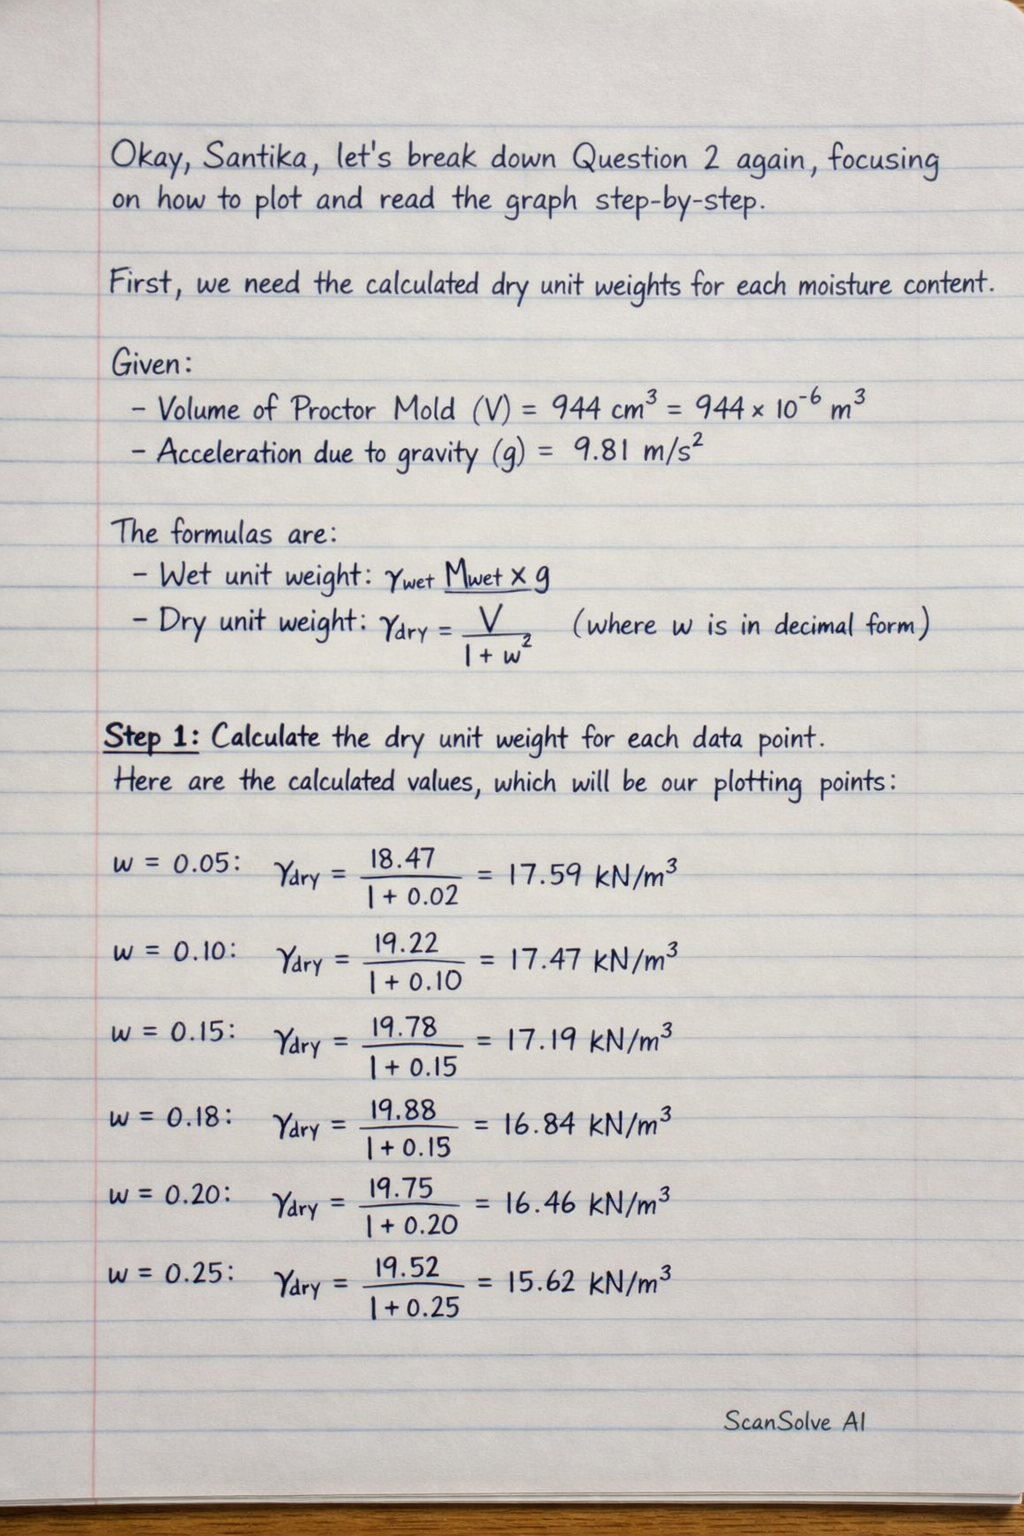 Okay, Santika, let's break down Question 2 again, focusing
on how to plot and read the graph step-by-step.
First, we need the calculated dry unit weights for each moisture content.
Given:
– Volume of Proctor Mold (V) = 944 cm³ = 944 × 10⁻⁶ m³
– Acceleration due to gravity (g) = 9.81 m/s²
The formulas are:
– Wet unit weight: γwet Mwet × g
– Dry unit weight: γdry = V / 1 + w² (where w is in decimal form)
Step 1: Calculate the dry unit weight for each data point.
Here are the calculated values, which will be our plotting points:
w = 0.05: γdry = 18.47 / 1 + 0.02 = 17.59 kN/m³
w = 0.10: γdry = 19.22 / 1 + 0.10 = 17.47 kN/m³
w = 0.15: γdry = 19.78 / 1 + 0.15 = 17.19 kN/m³
w = 0.18: γdry = 19.88 / 1 + 0.15 = 16.84 kN/m³
w = 0.20: γdry = 19.75 / 1 + 0.20 = 16.46 kN/m³
w = 0.25: γdry = 19.52 / 1 + 0.25 = 15.62 kN/m³
ScanSolve AI